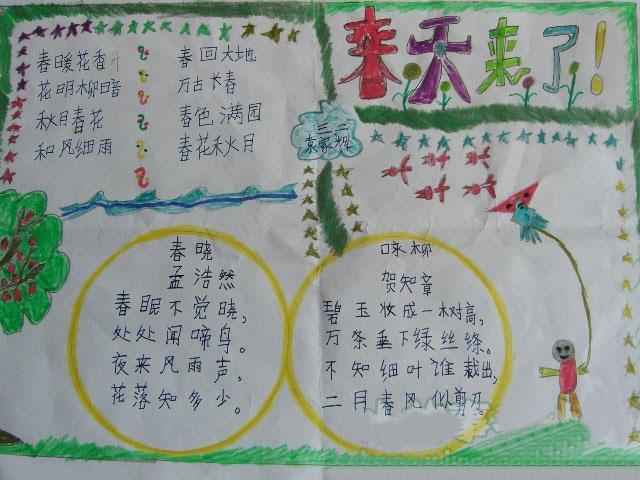 春天来了!
春暖花香
花明柳暗
秋月春花
和风细雨
春回大地
万古长春
春色满园
春花秋月
三二
春晓
孟浩然
春眠不觉晓,
处处闻啼鸟。
夜来风雨声,
花落知多少。
咏柳
贺知章
碧玉妆成一树高,
万条垂下绿丝绦。
不知细叶谁裁出,
二月春风似剪刀。